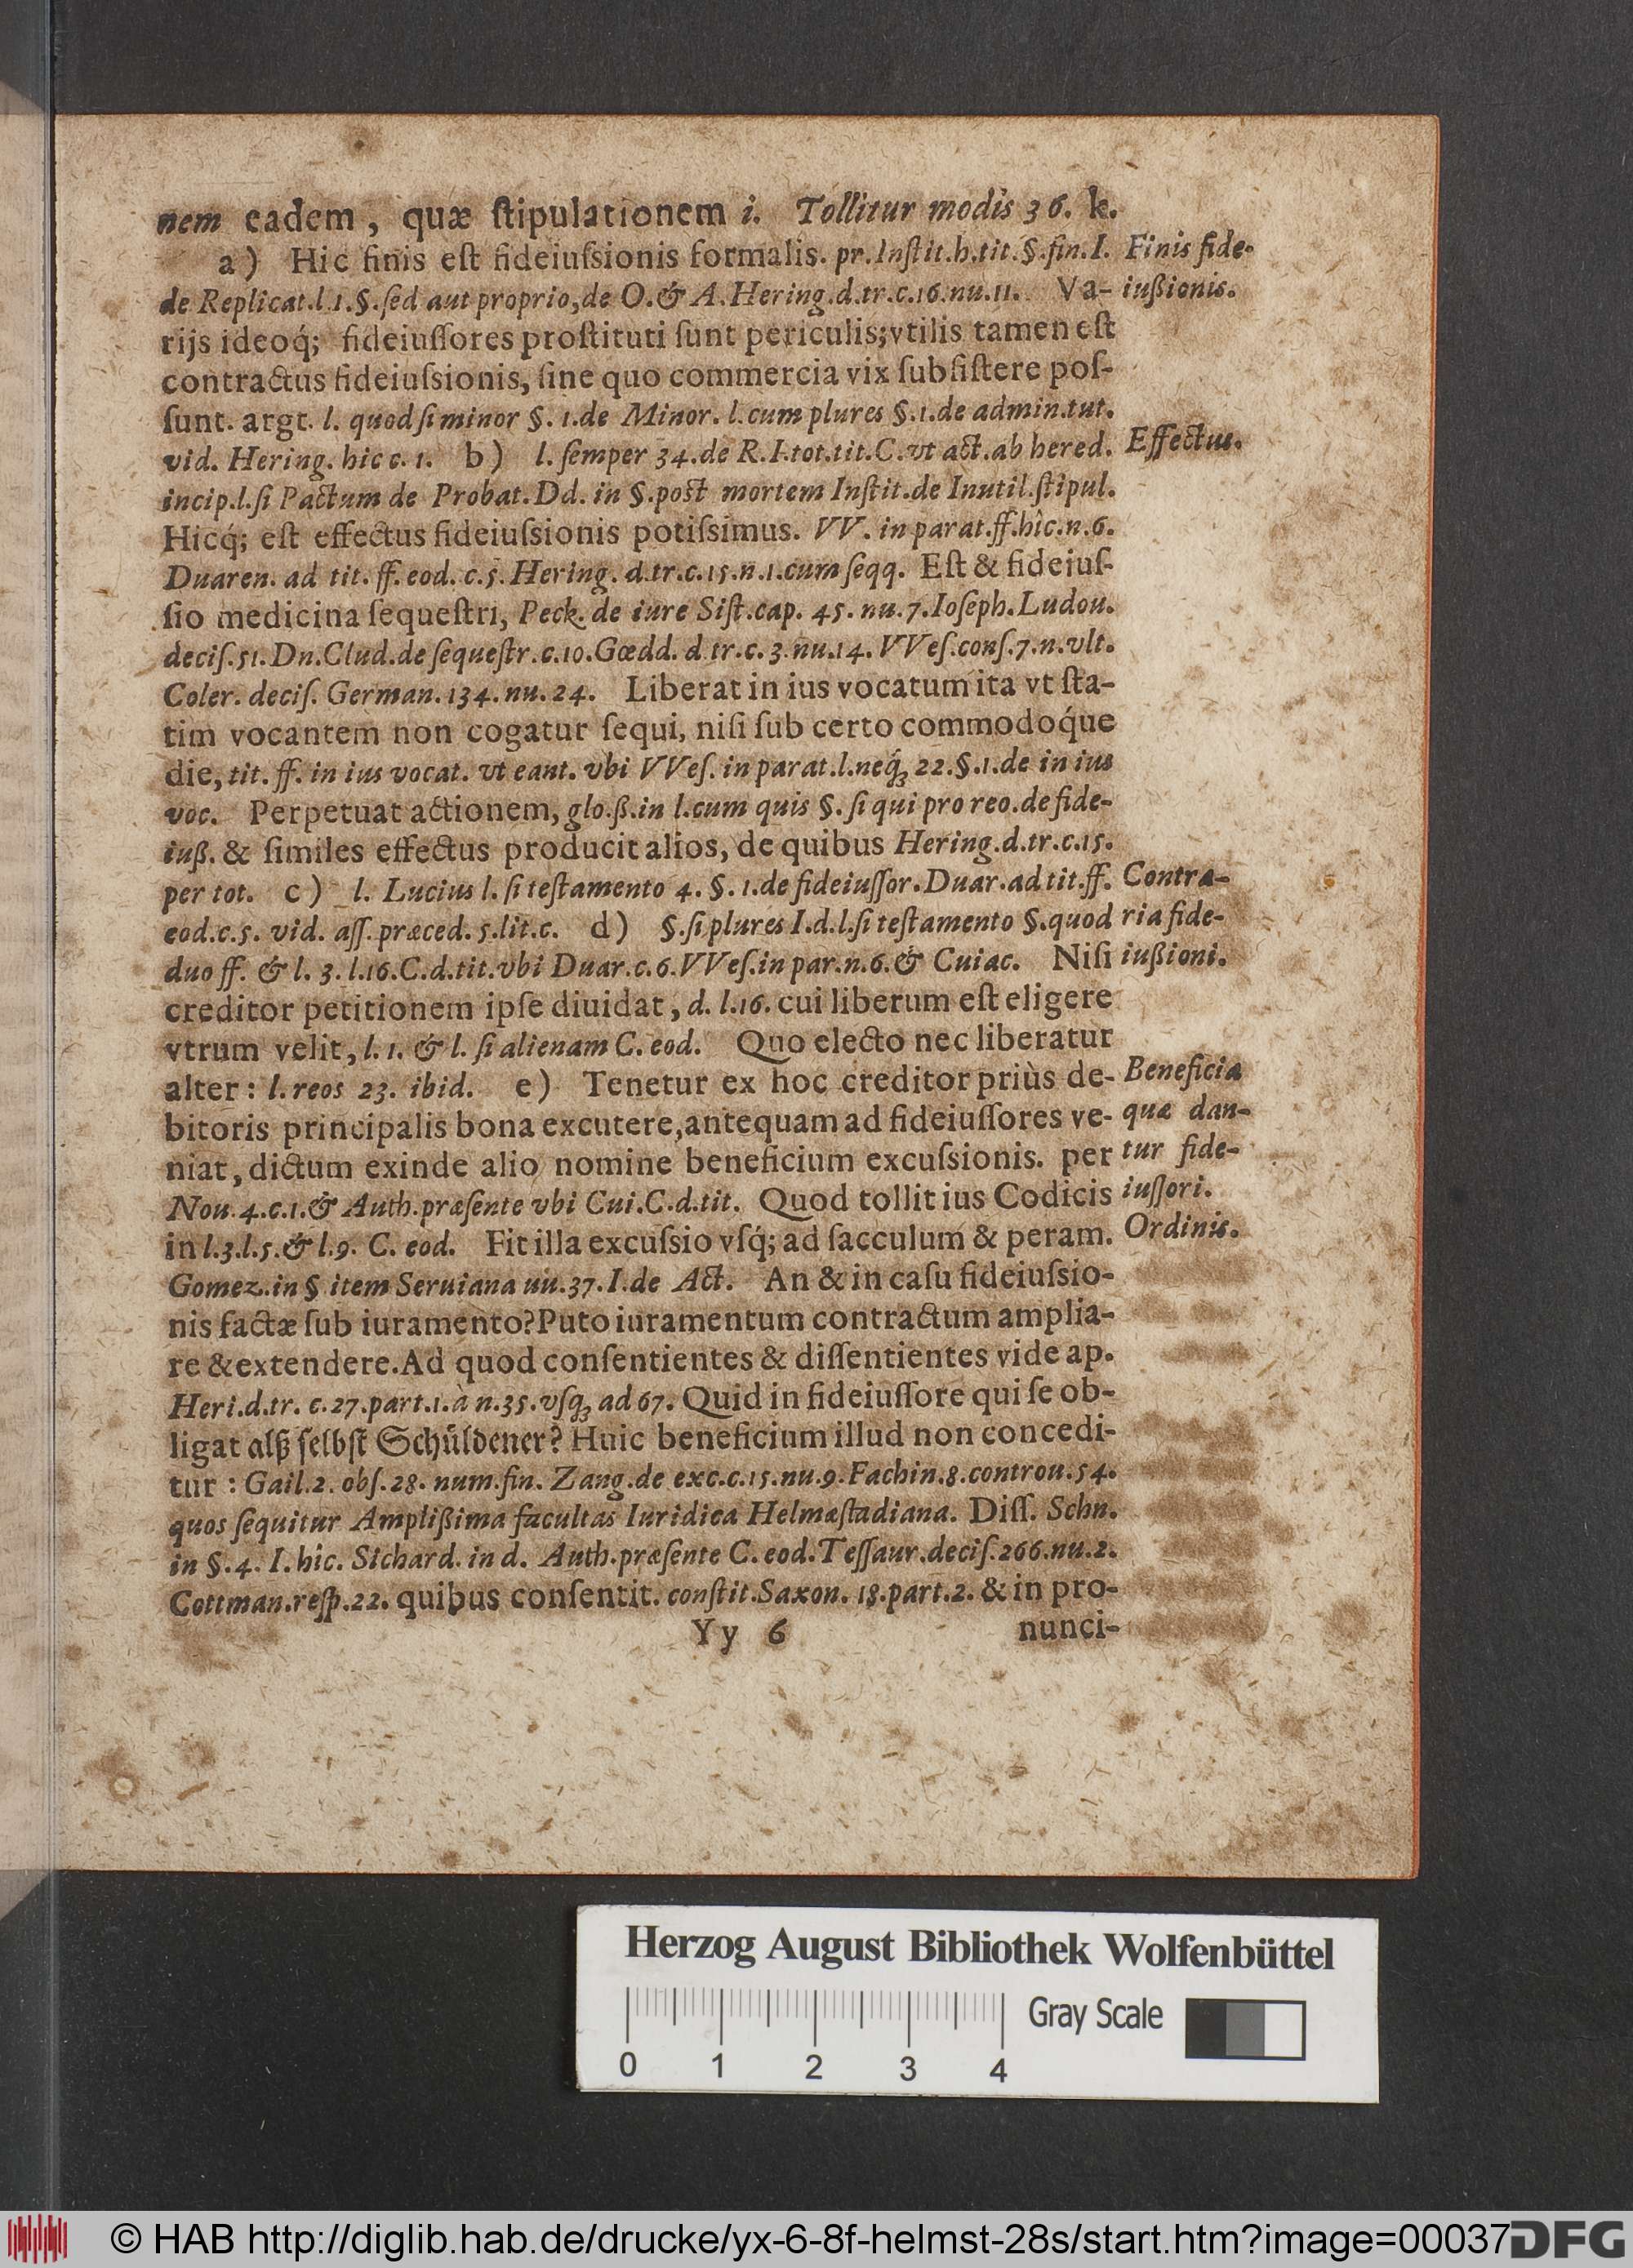 nem eadem, quæ ſtipulationem i. Tollitur modis 36. k.
a) Hic finis eſt fideiuſsionis formalis. pr. Inſtit. h. tit. §. fin. I.
Finis fide-
de Replicat. l. 1. §. ſed aut proprio, de O. & A. Hering. d. tr. c. 16. nu. 11. Va-
iußionis.
rijs ideoq́; fideiuſſores proſtituti ſunt periculis; vtilis tamen eſt
contractus fideiuſsionis, ſine quo commercia vix ſubſiſtere poſ-
ſunt. argt. l. quod ſi minor §. 1. de Minor. l. cum plures §. 1. de admin. tut.
vid. Hering. hic c. 1. b) l. ſemper 34. de R. I. tot. tit. C. vt act. ab hered.
Effectus.
incip. l. ſi Pactum de Probat. Dd. in §. poſt mortem Inſtit. de Inutil. ſtipul.
Hicq́; eſt effectus fideiuſsionis potiſsimus. VV. in parat. ff. hìc. n. 6.
Duaren. ad tit. ff. eod. c. 5. Hering. d. tr. c. 15. n. 1. cum ſeqq. Eſt & fideiuſ-
ſio medicina ſequeſtri, Peck. de iure Siſt. cap. 45. nu. 7. Ioſeph. Ludou.
deciſ. 51. Dn. Clud. de ſequeſtr. c. 10. Gœdd. d. tr. c. 3. nu. 14. VVeſ. conſ. 7. n. vlt.
Coler. deciſ. German. 134. nu. 24. Liberat in ius vocatum ita vt ſta-
tim vocantem non cogatur ſequi, niſi ſub certo commodoq́ue
die, tit. ff. in ius vocat. vt eant. vbi VVeſ. in parat. l. neq́ꝫ 22. §. 1. de in ius
voc. Perpetuat actionem, glo. ß. in l. cum quis §. ſi qui pro reo. de fide-
iuß. & ſimiles effectus producit alios, de quibus Hering. d. tr. c. 15.
per tot. c) l. Lucius l. ſi teſtamento 4. §. 1. de fideiuſſor. Duar. ad tit. ff.
Contra-
eod. c. 5. vid. aſſ. præced. 5. lit. c. d) §. ſi plures I. d. l. ſi teſtamento §. quod
ria fide-
duo ff. & l. 3. l. 16. C. d. tit. vbi Duar. c. 6. VVeſ. in par. n. 6. & Cuiac. Niſi
iußioni.
creditor petitionem ipſe diuidat, d. l. 16. cui liberum eſt eligere
vtrum velit, l. 1. & l. ſi alienam C. eod. Quo electo nec liberatur
alter: l. reos 23. ibid. e) Tenetur ex hoc creditor priùs de-
Beneficia
bitoris principalis bona excutere, antequam ad fideiuſſores ve-
quæ dan-
niat, dictum exinde alio nomine beneficium excuſsionis. per
tur fide-
Nou. 4. c. 1. & Auth. præſente vbi Cui. C. d. tit. Quod tollit ius Codicis
iuſſori.
in l. 3. l. 5. & l. 9. C. eod. Fit illa excuſsio vſq́; ad ſacculum & peram.
Ordinis.
Gomez. in § item Seruiana nu. 37. I. de Act. An & in caſu fideiuſsio-
nis factæ ſub iuramento? Puto iuramentum contractum amplia-
re & extendere. Ad quod conſentientes & diſſentientes vide ap.
Heri. d. tr. c. 27. part. 1. à n. 35. vſqꝫ ad 67. Quid in fideiuſſore qui ſe ob-
ligat alß ſelbſt Schüldener? Huic beneficium illud non concedi-
tur: Gail. 2. obſ. 28. num. fin. Zang. de exc. c. 15. nu. 9. Fachin. 8. controu. 54.
quos ſequitur Amplißima facultas Iuridica Helmæſtadiana. Diſſ. Schn.
in §. 4. I. hic. Sichard. in d. Auth. præſente C. eod. Teſſaur. deciſ. 266. nu. 2.
Cottman. reſp. 22. quibus conſentit. conſtit. Saxon. 18. part. 2. & in pro-
Yy 6
nunci-
Herzog August Bibliothek Wolfenbüttel
Gray Scale
0 1 2 3 4
© HAB http://diglib.hab.de/drucke/yx-6-8f-helmst-28s/start.htm?image=00037
DFG